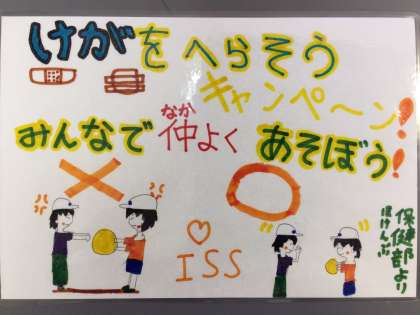 けがをへらそう
キャンペ〜ン!!
みんなで仲よくあそぼう!
なか
保健部より
ほけんぶ
ISS